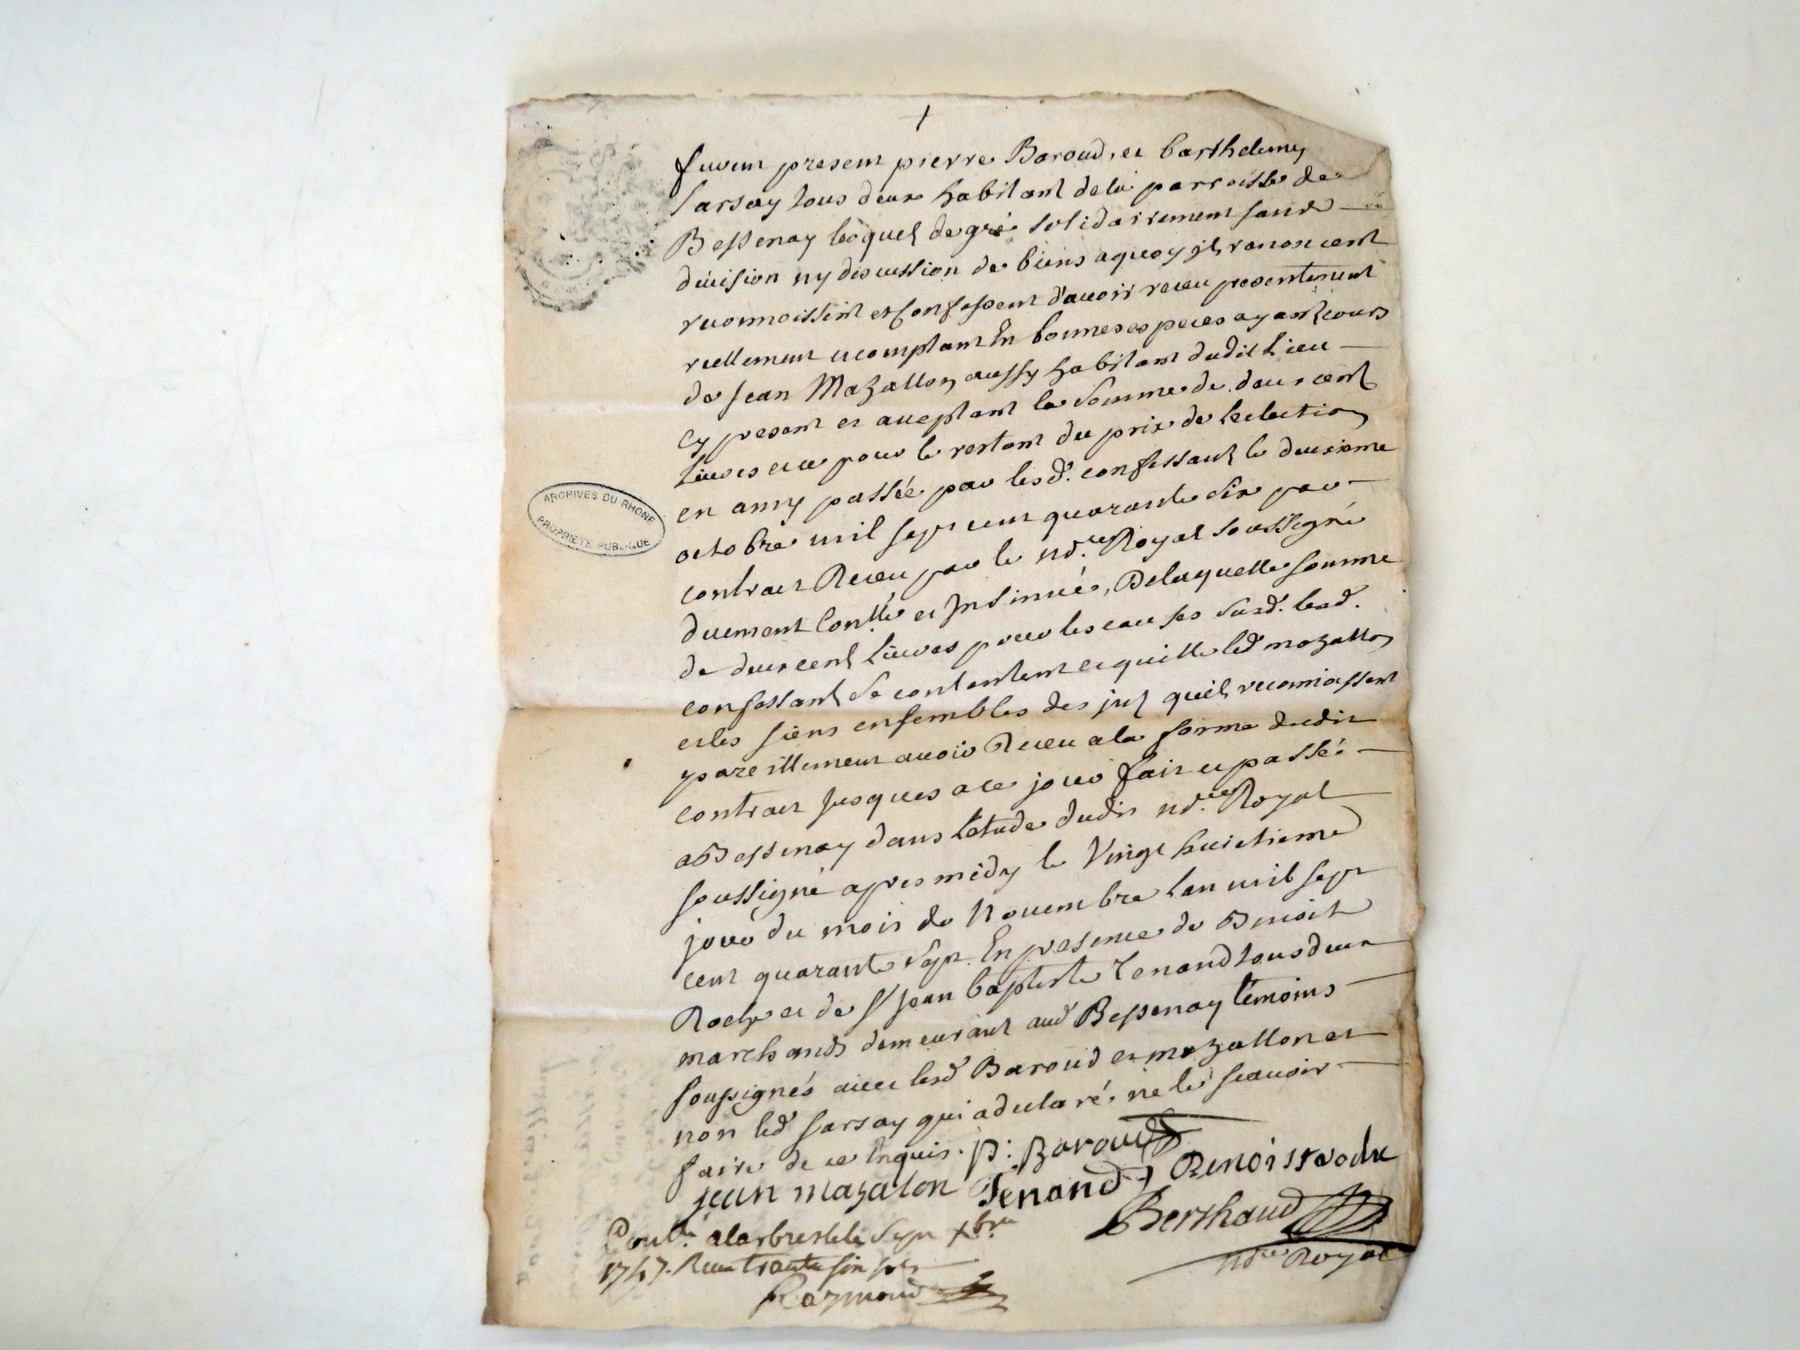 furent present pierre Baroud, et barthelemy
Sarsay tous deux habitant dela parroisse de
Bessenay lesquels de gré solidairement sans
division ny discussion de biens aquoy ils renoncent
reconnoissent et Confessent d'avoir receu presentement
reellement ucomptant En bonnes especes ayant cours
de Jean Mazallon aussy habitant dudit Lieu
Cy present et aceptant la somme de deux cent
Livres et ce pour le restant du prix de Lelection
en amy passée par lesd. confessants le deuxieme
octobre mil sept cent quarante six par
contract Receu par le nore. Royal soussigné
duement Conllé et Insinué, Delaquelle somme
de deux cent Livres pour les causes susd. lesd.
confessant se contentent et quitte led mazallon
et les siens ensembles des jnts quils reconnoissent
pareillement avoir Receu ala forme dudit
contract Jusques a ce jour fait et passé
a Bessenay dans l'etude dudit nore. Royal
soussigné apres midy le Vingt huictieme
jour du mois de Novembre lan mil sept
cent quarante sept. En presence de Benoist
Roche et de St Jean baptiste Tenand tous deux
marchands demeurant aud Bessenay témoins
soussignés avec lesd Baroud et mazallon et
non led Sarsay qui a declaré ne le scavoir
faire de ce Enquis. P: Baroud
jean mazalon Tenand Benoist roche
Berthaud
nore Royal
Conlé. alarbresle le sept xbre
1747. Receu trante six sols
Raymond
ARCHIVES DU RHONE
PROPRIÉTÉ PUBLIQUE